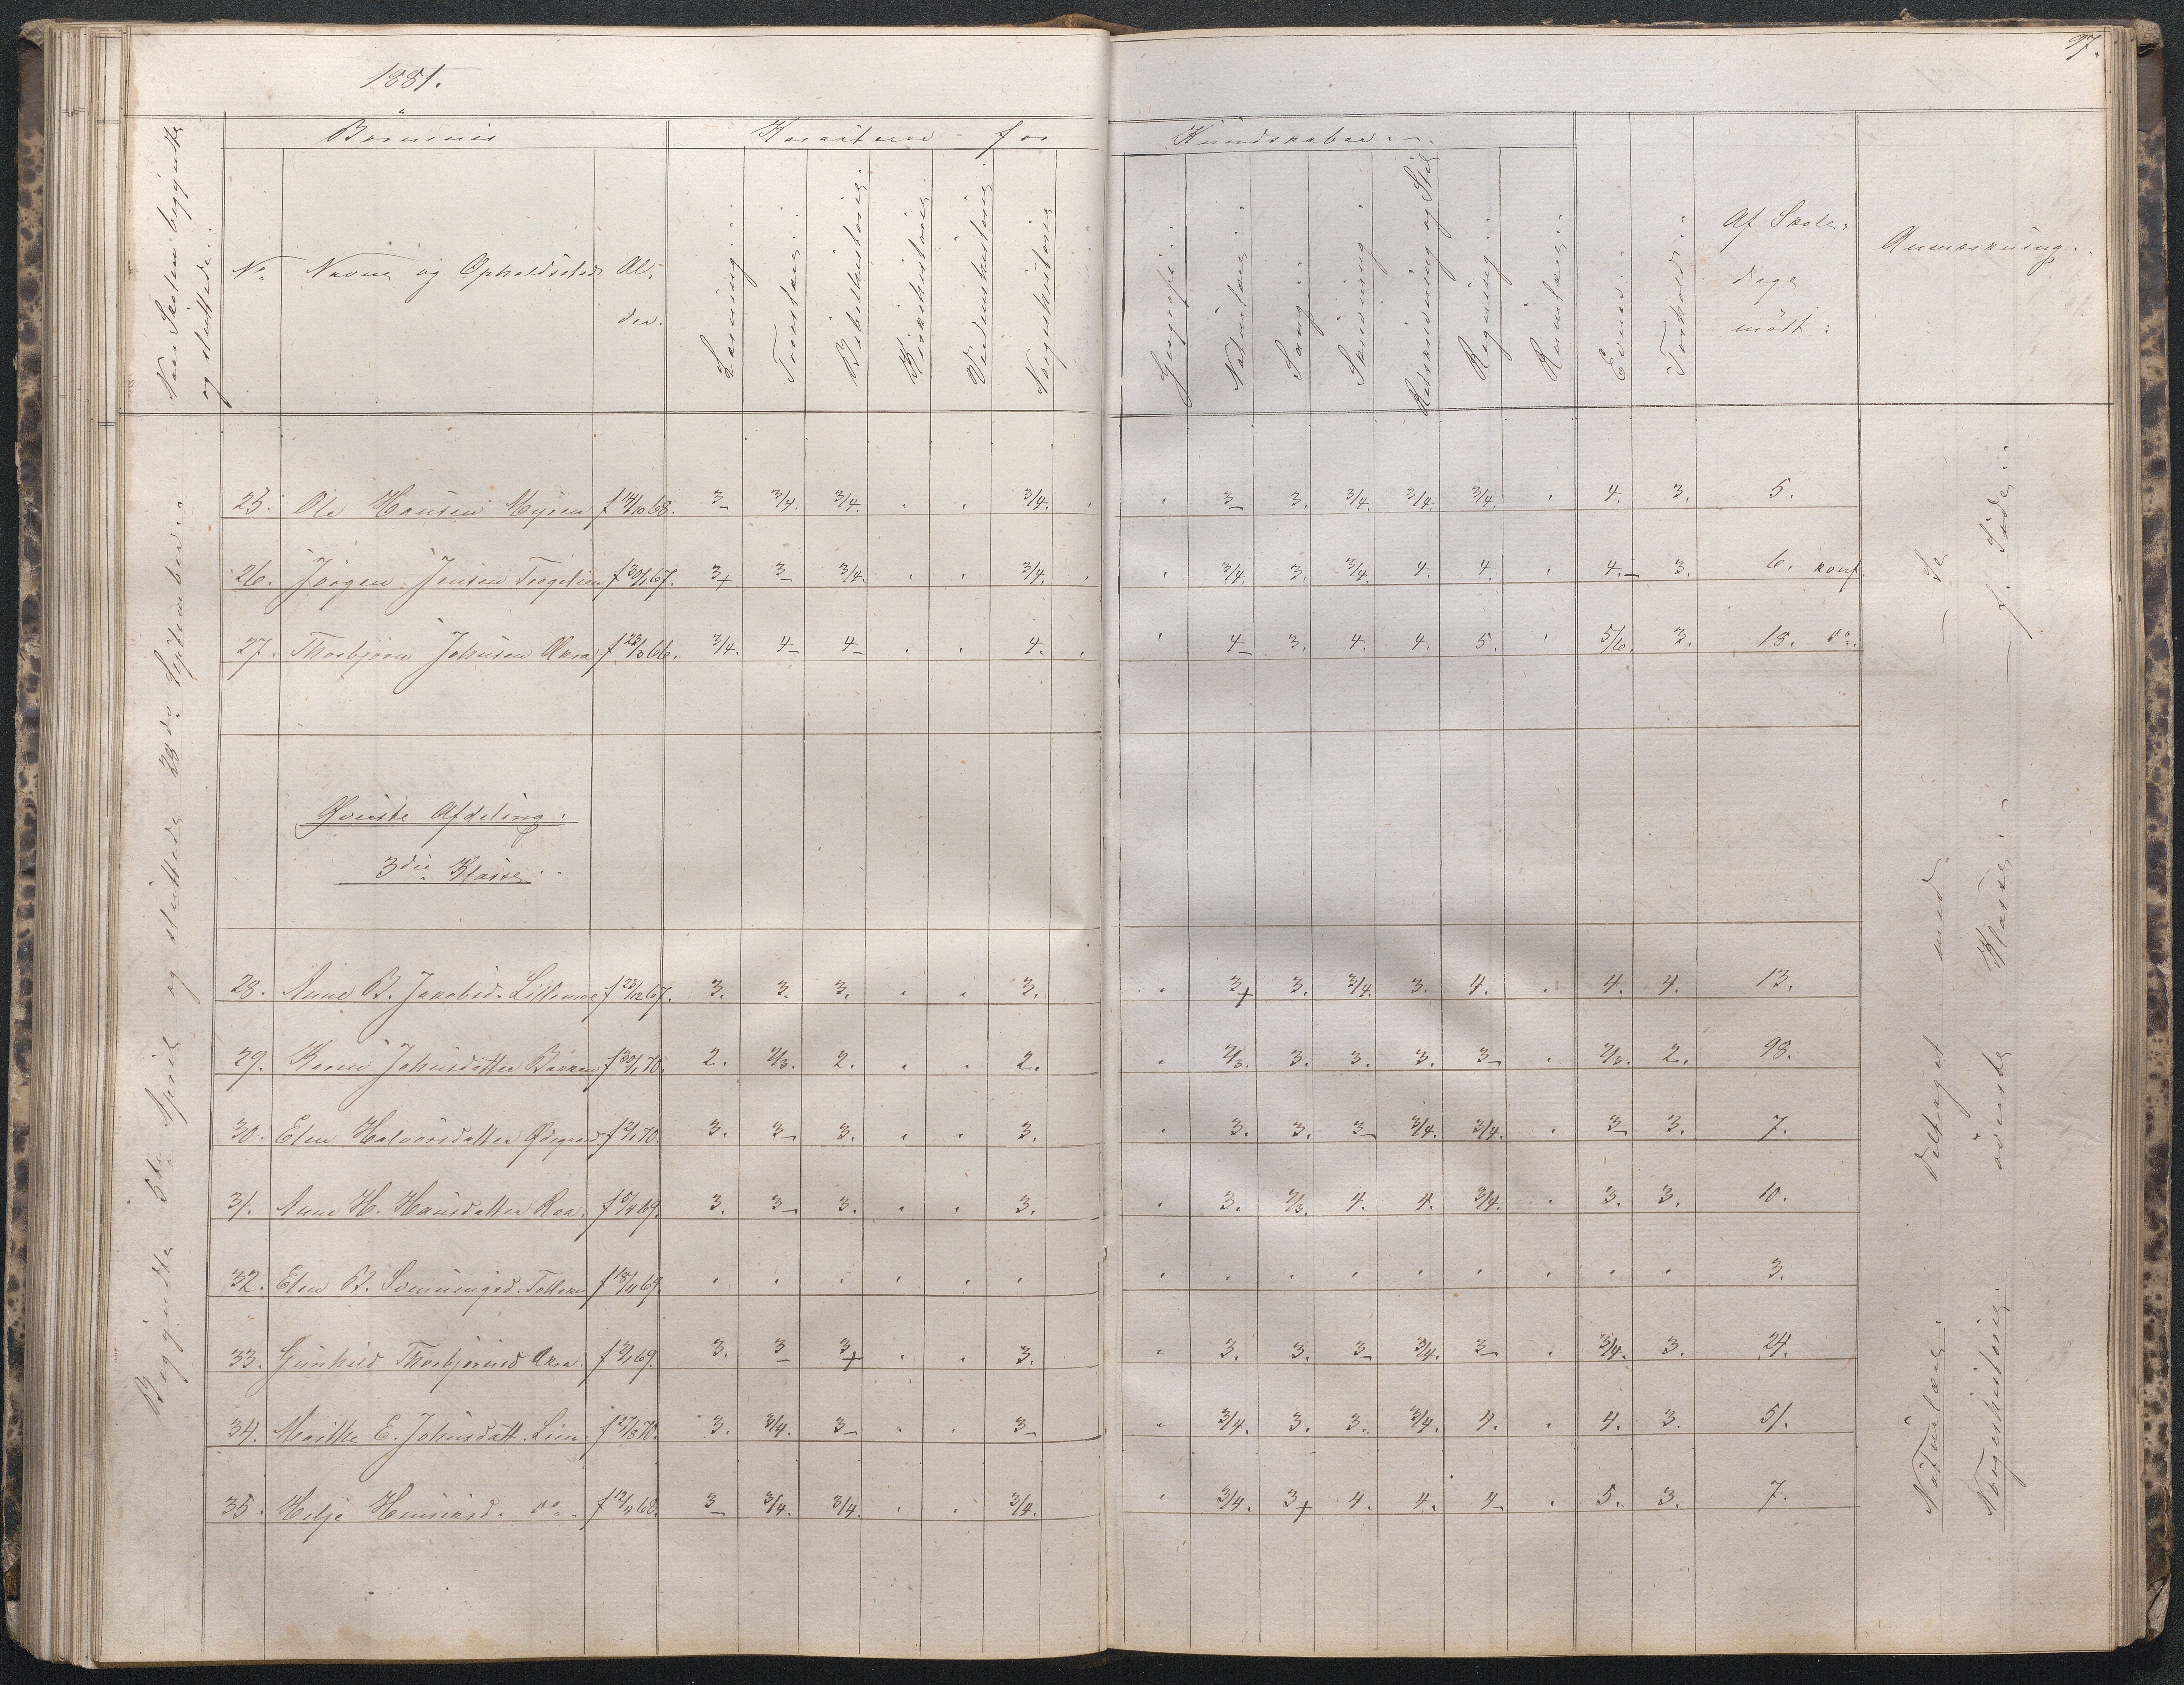 97.
1881.
Börnenes
Karakterer for
Kundskaber.
Naar Skolen begyndte
og sluttede.
No
Navne og Opholdssted
Al-
der.
Læsning.
Troeslære.
Bibelhistorie.
Kirkehistorie.
Verdenshistorie.
Norgeshistorie
Geografi.
Naturlære.
Sang.
Skrivning
Retskrivning og Stil
Regning.
Rumlære.
Evner.
Forhold.
Af Skole-
dage
mödt:
Anmærkning.
Begyndte 5te April og sluttede 28de September.
25. Ole Hansen Myren f 14/10 68. 3- 3/4. 3/4. . . 3/4. . . 3- 3. 3/4. 3/4. 3/4. . 4. 3. 5.
26. Jörgen Jensen f 30/1 67. 3+ 3- 3/4. . . 3/4. . . 3/4. 3. 3/4. 4. 4. . 4.- 3. 6. konf.
27. Thorbjörn Johnsen Akra f 28/3 66. 3/4. 4- 4- . . 4. . . 4- 3. 4. 4. 5. . 5/6. 3. 15. do.
Øverste Afdeling.
3die Klasse.
28. Anne B. Jakobsd. Lillemoe f 25/12 67. 3. 3. 3. . . 3. . 3+ 3. 3/4. 3. 4. . 4. 4. 13.
29. Karen Johnsdatter Bakken f 30/1 70. 2. 2/3. 2. . . 2. . 2/3. 3. 3. 3. 3- . 2/3. 2. 98.
30. Elen Halvorsdatter Ødegaard f 2/1 70. 3. 3- 3. . . 3. . 3. 3. 3- 3/4. 3/4. . 3- 3. 7.
31. Anne H. Hansdatter Roa. f 5/4 69. 3. 3- 3. . . 3. . 3. 2/3. 4. 4. 3/4. . 3. 3. 10.
32. Elen B. f 18/11 69. . . . . . . . . . . . . . . . 3.
33. Gunhild Thorbjörnsd Akra. f 3/1 69. 3. 3- 3+ . . 3. . 3. 3. 3- 3/4. 3- . 3/4. 3. 24.
34. Marthe E. Johnsdatt. Lien. f 27/8 70. 3. 3/4. 3- . . 3- . 3/4. 3. 3. 3/4. 4. . 4. 3. 51.
35. Helje Henriksd. do. f 12/11 68. 3- 3/4. 3/4. . . 3/4. . 3/4. 3+ 4. 4. 4- . 5. 3. 7.
Naturlære. deltaget med - Se
Norgeshistorie. överste Klasse. - f. Side.